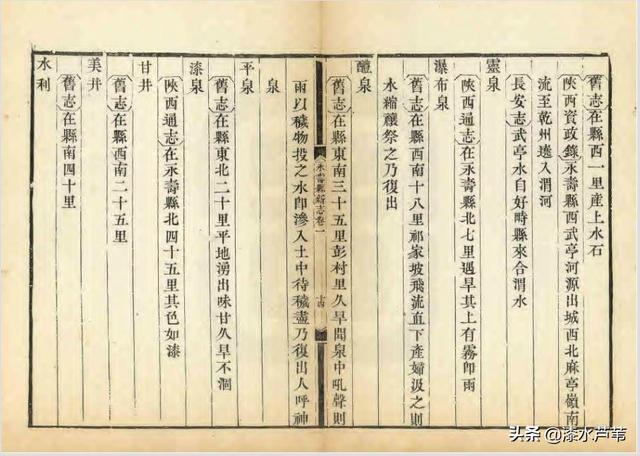 舊志在縣西一里產上水石
陝西資政錄永壽縣西武亭河源出城西北麻亭嶺南
流至乾州遶入渭河
長安志武亭水自好畤縣來合渭水
靈泉
陝西通志在永壽縣北七里遇旱其上有霧卽雨
瀑布泉
舊志在縣西南十八里祁家坡飛流直下產婦汲之則
水縮釀祭之乃復出
醴泉
舊志在縣東南三十五里彭村里久旱聞泉中吼聲則
永壽縣新志卷一
十四
雨以穢物投之水卽滲入土中待穢盡乃復出人呼神
泉
平泉
舊志在縣東北二十里平地湧出味甘久旱不涸
漆泉
陝西通志在永壽縣北四十五里其色如漆
甘井
舊志在縣西南二十五里
美井
舊志在縣南四十里
水利
头条 @漆水芦苇